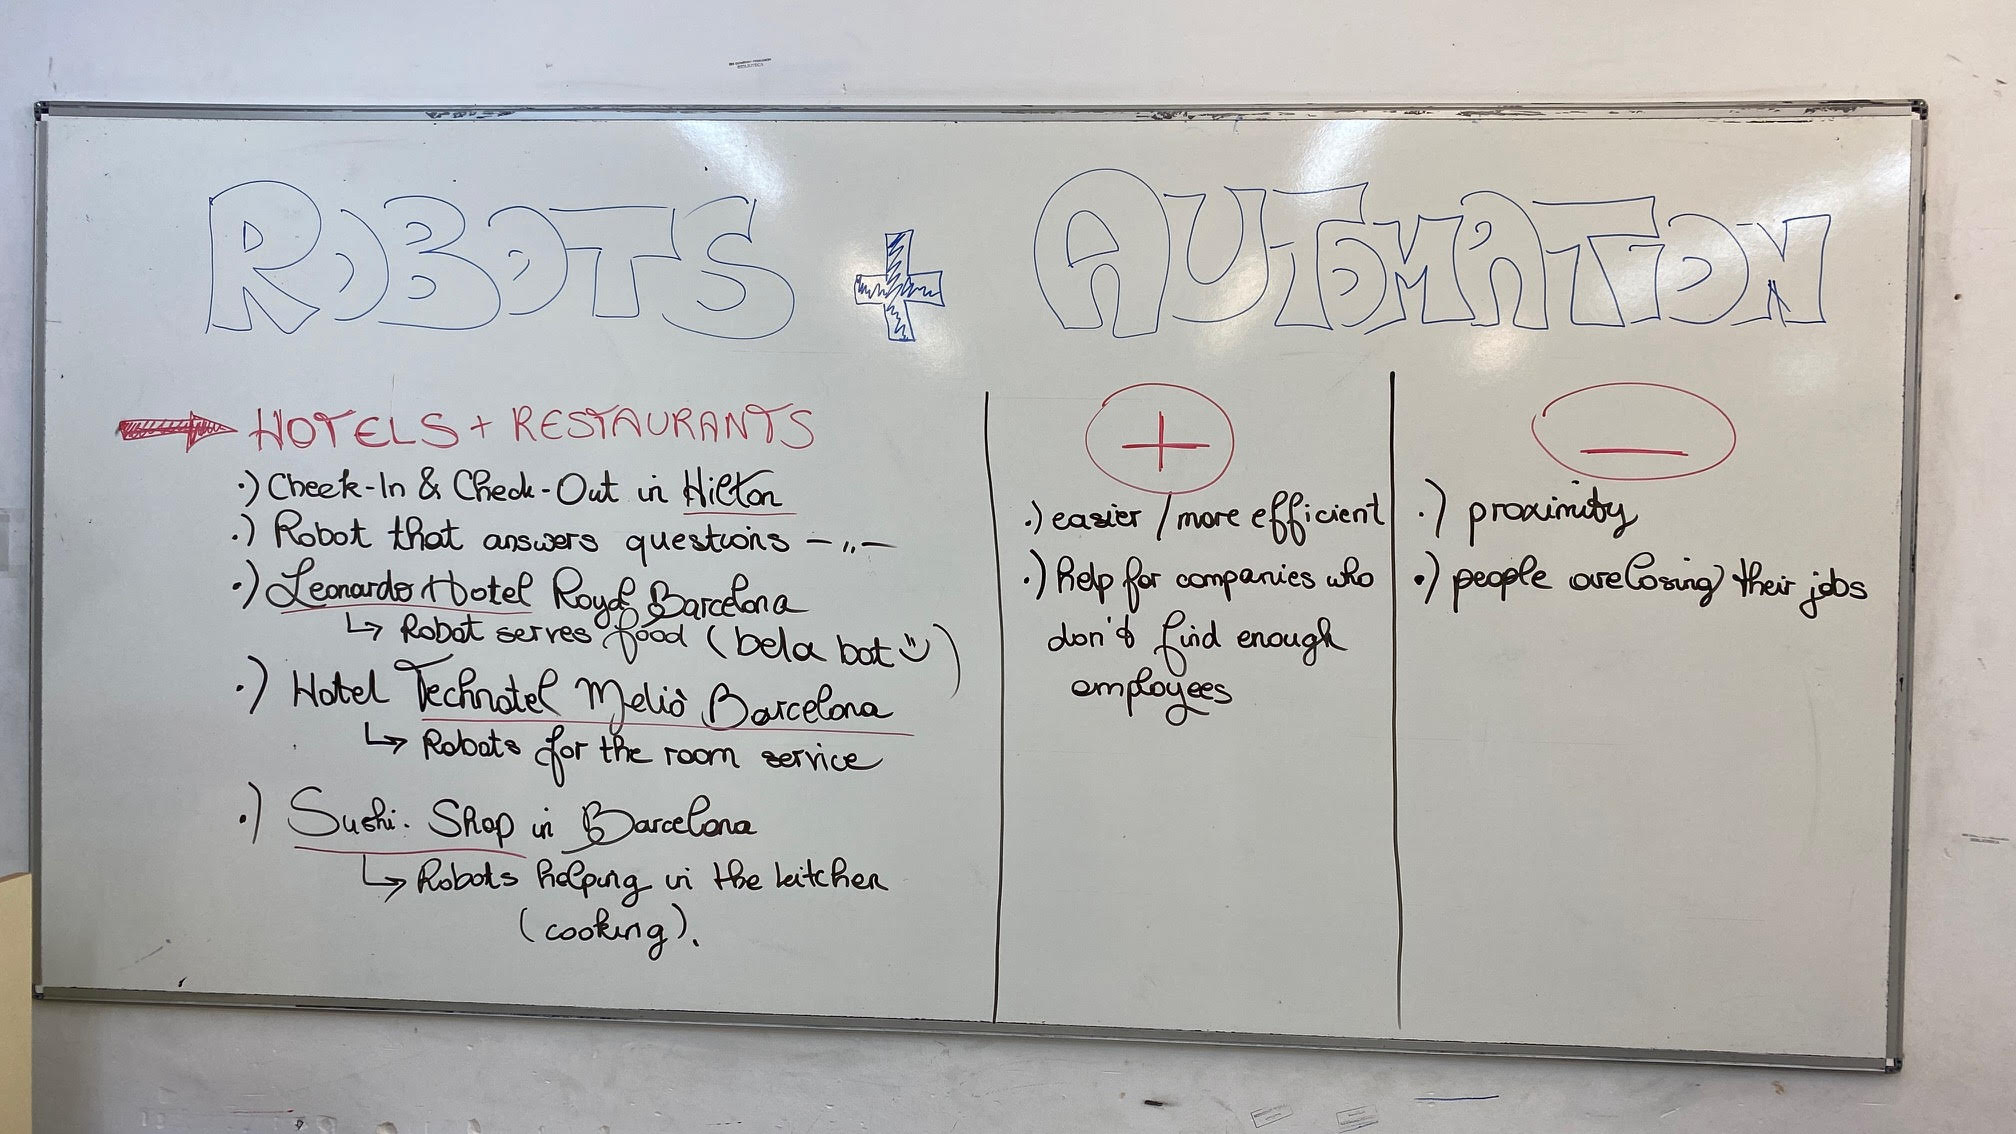 ROBOTS + AUTOMATION
HOTELS + RESTAURANTS
.) Check-In & Check-Out in Hilton
.) Robot that answers questions – ,, –
.) Leonardo Hotel Royal Barcelona
↳ Robot serves food (bela bot ☺)
.) Hotel Technotel Meliò Barcelona
↳ Robots for the room service
.) Sushi. Shop in Barcelona
↳ Robots helping in the kitchen
(cooking).
+
.) easier / more efficient
.) help for companies who
don't find enough
employees
–
.) proximity
.) people are losing their jobs